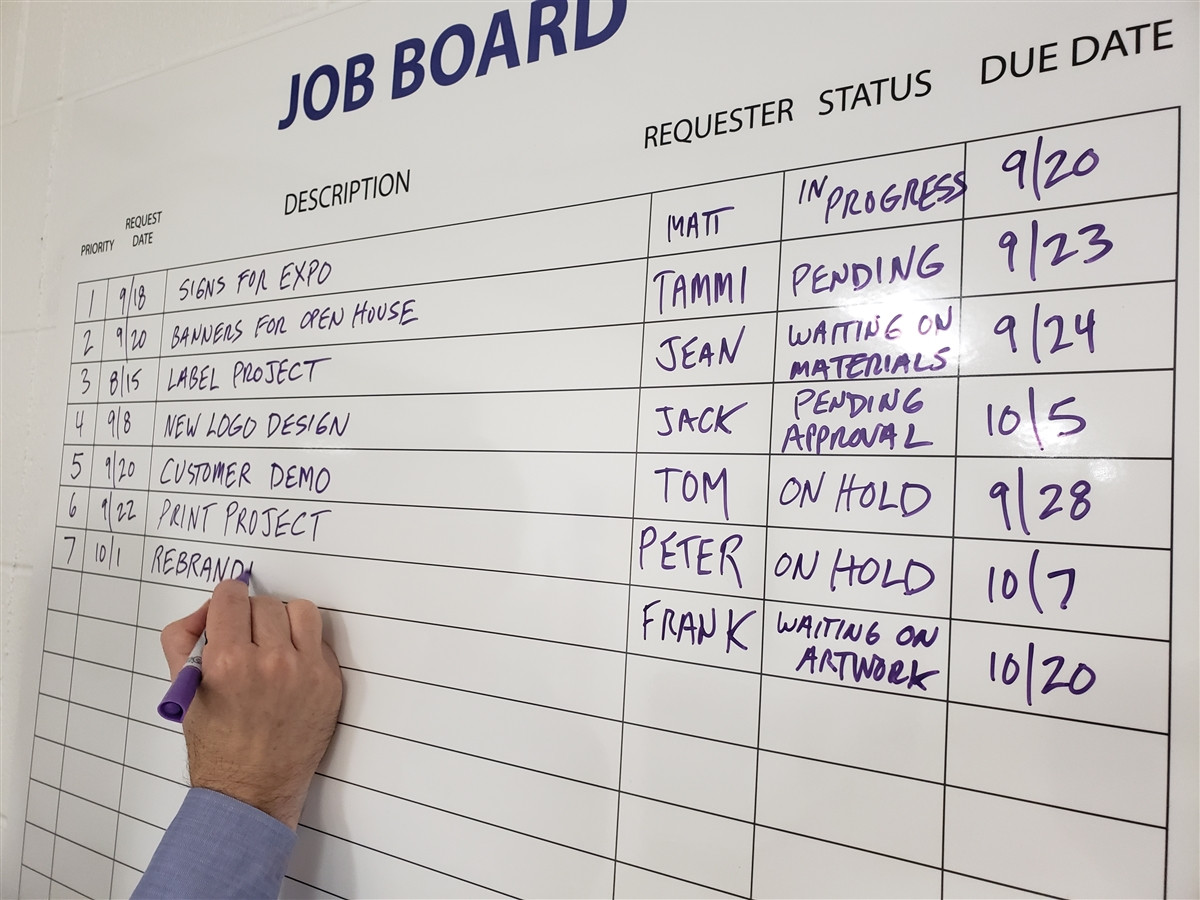 JOB BOARD
PRIORITY REQUEST DATE DESCRIPTION REQUESTER STATUS DUE DATE
1 9/18 SIGNS FOR EXPO MATT IN PROGRESS 9/20
2 9/20 BANNERS FOR OPEN HOUSE TAMMI PENDING 9/23
3 8/15 LABEL PROJECT JEAN WAITING ON MATERIALS 9/24
4 9/8 NEW LOGO DESIGN JACK PENDING APPROVAL 10/5
5 9/20 CUSTOMER DEMO TOM ON HOLD 9/28
6 9/22 PRINT PROJECT PETER ON HOLD 10/7
7 10/1 REBRANDI FRANK WAITING ON ARTWORK 10/20